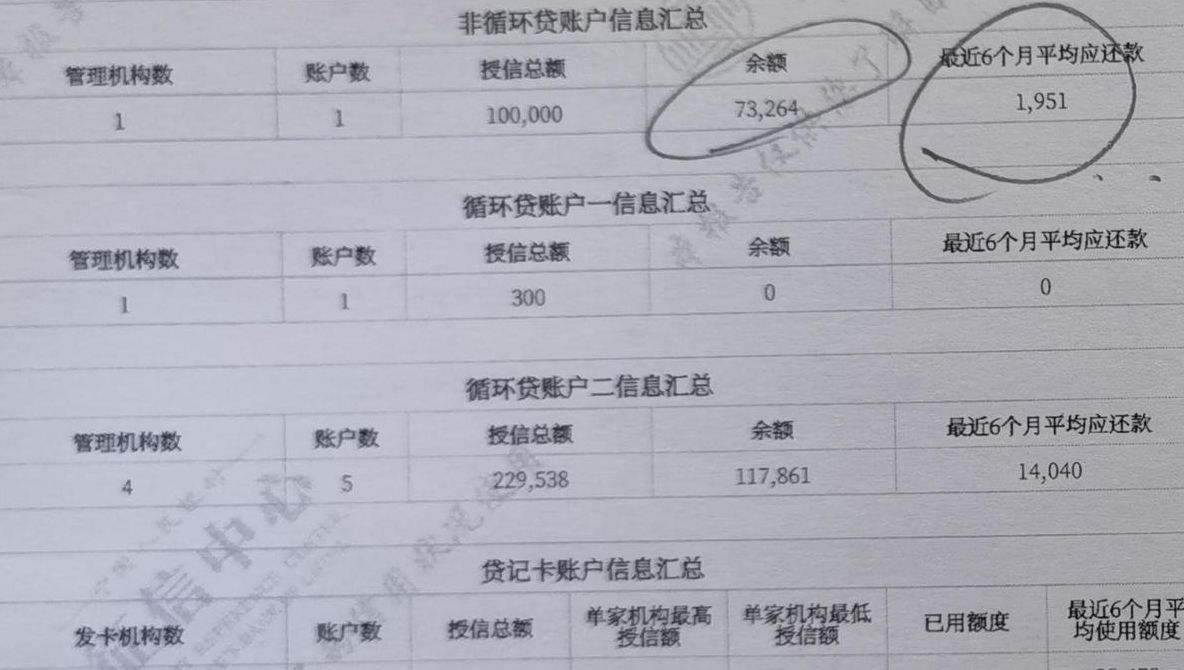 非循环贷账户信息汇总
管理机构数 账户数 授信总额 余额 最近6个月平均应还款
1 1 100,000 73,264 1,951
循环贷账户一信息汇总
管理机构数 账户数 授信总额 余额 最近6个月平均应还款
1 1 300 0 0
循环贷账户二信息汇总
管理机构数 账户数 授信总额 余额 最近6个月平均应还款
4 5 229,538 117,861 14,040
贷记卡账户信息汇总
发卡机构数 账户数 授信总额 单家机构最高授信额 单家机构最低授信额 已用额度 最近6个月平均使用额度
信中心